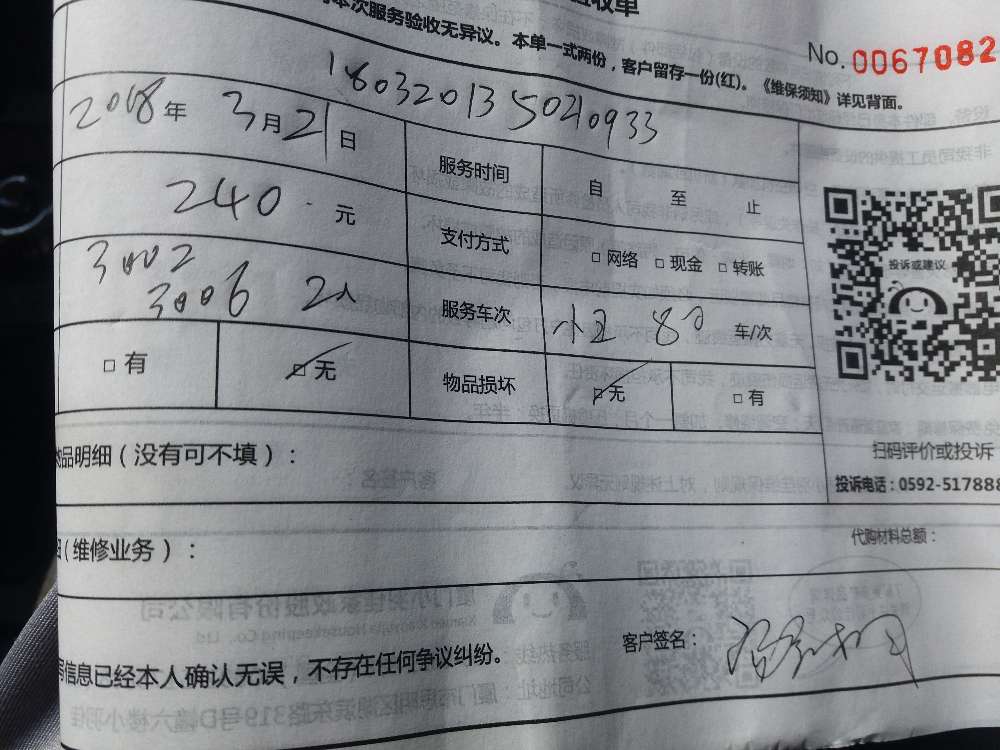 收单
本次服务验收无异议。本单一式两份，客户留存一份(红)。《维保须知》详见背面。
No. 0067082
1803201350210933
2018年 3月21日
服务时间 自 至 止
240 元
支付方式 □网络 □现金 □转账
投诉或建议
3002
3006 2人
服务车次 80 车/次
□有 □无
物品损坏 □无 □有
品明细（没有可不填）：
扫码评价或投诉
投诉电话：0592-517888
（维修业务）：
代购材料总额：
信息已经本人确认无误，不存在任何争议纠纷。
客户签名：